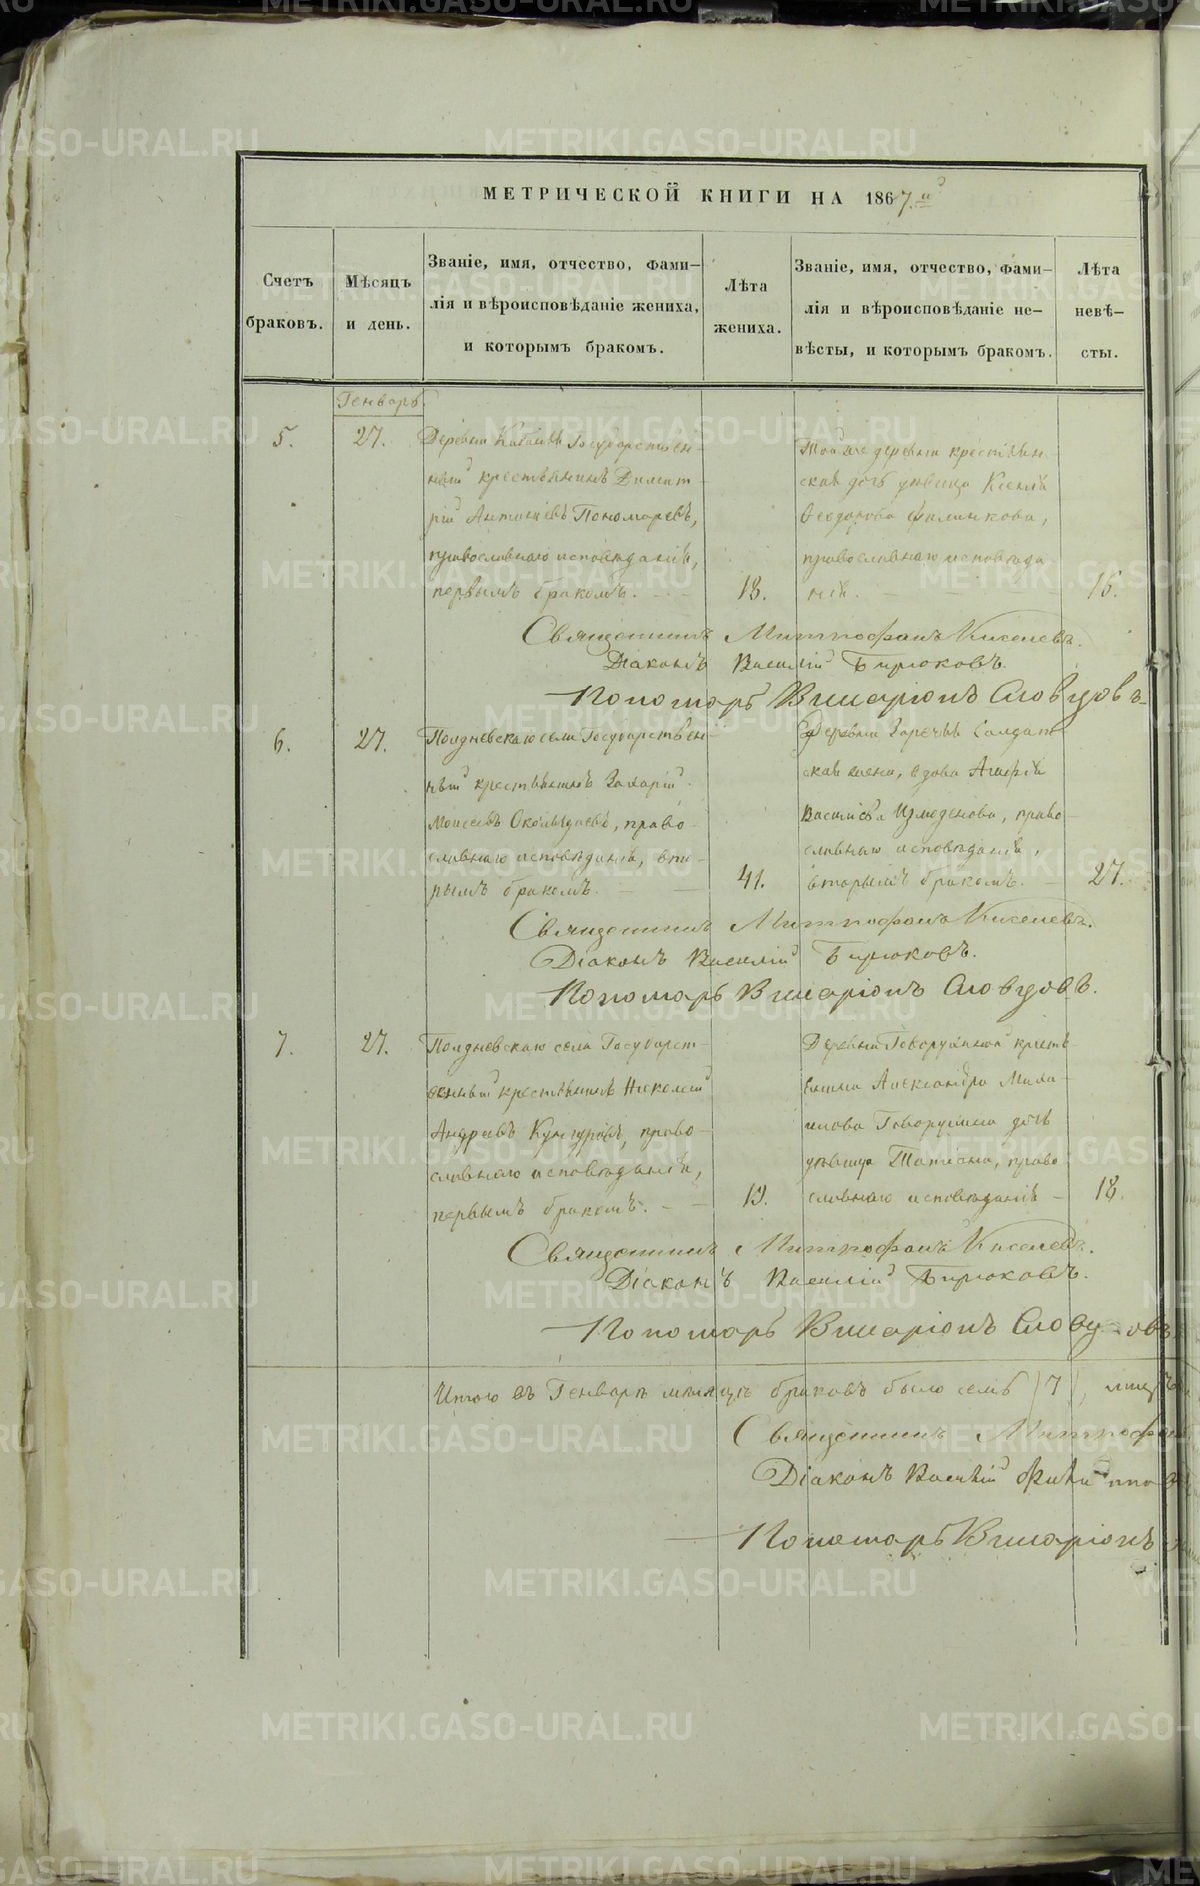 МЕТРИЧЕСКОЙ КНИГИ НА 1867.й
Счетъ браковъ.
Мѣсяцъ и день.
Званіе, имя, отчество, фами-
лія и вѣроисповѣданіе жениха,
и которымъ бракомъ.
Лѣта жениха.
Званіе, имя, отчество, фами-
лія и вѣроисповѣданіе не-
вѣсты, и которымъ бракомъ.
Лѣта невѣ-
сты.
Генварь.
5.
27.
Деревни Государствен-
ный крестьянинъ Димит-
рій Антоніевъ Пономаревъ,
православнаго исповѣданія,
первымъ бракомъ.
18.
Той же деревни крестьян-
ская дочь дѣвица Ксенія
Феодорова Филинкова,
православнаго исповѣда-
нія.
16.
Священникъ Митрофанъ Киселевъ.
Діаконъ Василій Бирюковъ.
Пономарь Виссаріонъ Словцовъ.
6.
27.
Полдневскаго села Государствен-
ный крестьянинъ Захарій
Моисеевъ право-
славнаго исповѣданія, вто-
рымъ бракомъ.
41.
Деревни Зарѣчья Солдат-
ская жена, вдова Агафія
Васильева Измоденова, право-
славнаго исповѣданія,
вторымъ бракомъ.
27.
Священникъ Митрофанъ Киселевъ.
Діаконъ Василій Бирюковъ.
Пономарь Виссаріонъ Словцовъ.
7.
27.
Полдневскаго села Государст-
венный крестьянинъ Николай
Андреевъ право-
славнаго исповѣданія,
первымъ бракомъ.
19.
Деревни крестья-
нина Александра Миха-
илова Говорухина дочь
дѣвица Татіана, право-
славнаго исповѣданія
18.
Священникъ Митрофанъ Киселевъ.
Діаконъ Василій Бирюковъ.
Пономарь Виссаріонъ Словцовъ.
Итого въ Генварѣ мѣсяцѣ браковъ было семь (7),
Священникъ
Діаконъ Василій
Пономарь Виссаріонъ
METRIKI.GASO-URAL.RU